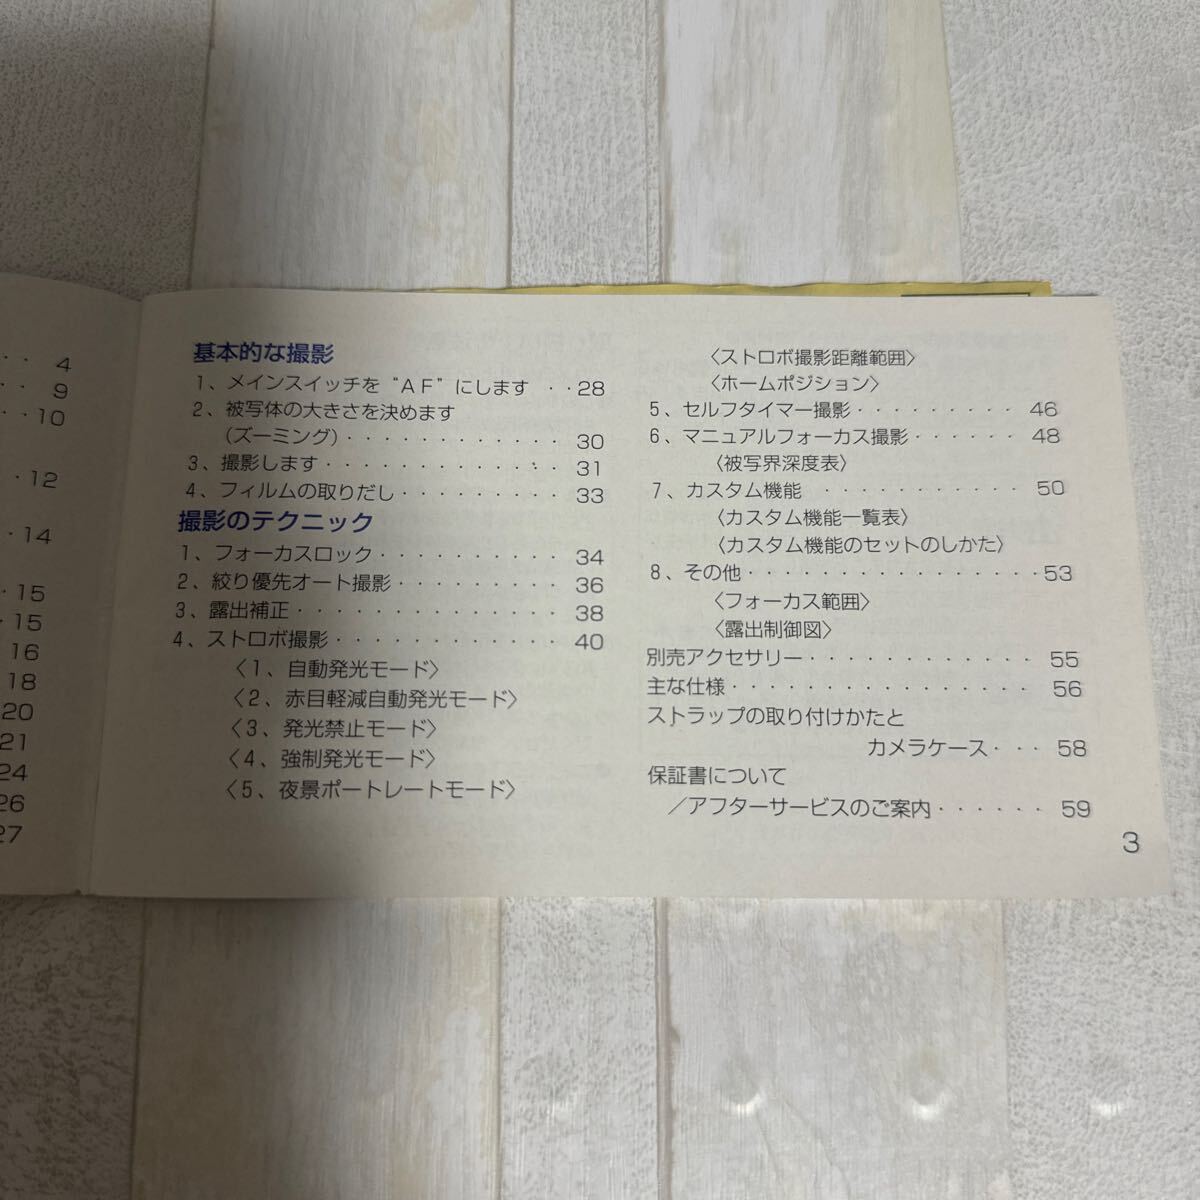 ・・ 4
・・ 9
・・・10
・12
・・14
・15
・15
16
18
20
21
24
26
27
基本的な撮影
1、メインスイッチを“AF”にします ・・28
2、被写体の大きさを決めます
(ズーミング)・・・・・・・・・・・・ 30
3、撮影します・・・・・・・・・・・・・ 31
4、フィルムの取りだし・・・・・・・・・ 33
撮影のテクニック
1、フォーカスロック・・・・・・・・・・ 34
2、絞り優先オート撮影・・・・・・・・・ 36
3、露出補正・・・・・・・・・・・・・・ 38
4、ストロボ撮影・・・・・・・・・・・・ 40
〈1、自動発光モード〉
〈2、赤目軽減自動発光モード〉
〈3、発光禁止モード〉
〈4、強制発光モード〉
〈5、夜景ポートレートモード〉
〈ストロボ撮影距離範囲〉
〈ホームポジション〉
5、セルフタイマー撮影・・・・・・・・・ 46
6、マニュアルフォーカス撮影・・・・・・ 48
〈被写界深度表〉
7、カスタム機能 ・・・・・・・・・・・ 50
〈カスタム機能一覧表〉
〈カスタム機能のセットのしかた〉
8、その他・・・・・・・・・・・・・・・53
〈フォーカス範囲〉
〈露出制御図〉
別売アクセサリー・・・・・・・・・・・・ 55
主な仕様・・・・・・・・・・・・・・・・ 56
ストラップの取り付けかたと
カメラケース・・・ 58
保証書について
／アフターサービスのご案内・・・・・・ 59
3